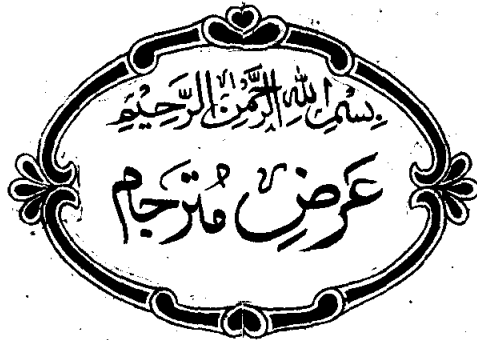 بِسْمِ اللهِ الرَّحْمٰنِ الرَّحِيْمِ
عَرَضِ مُتَرجَام